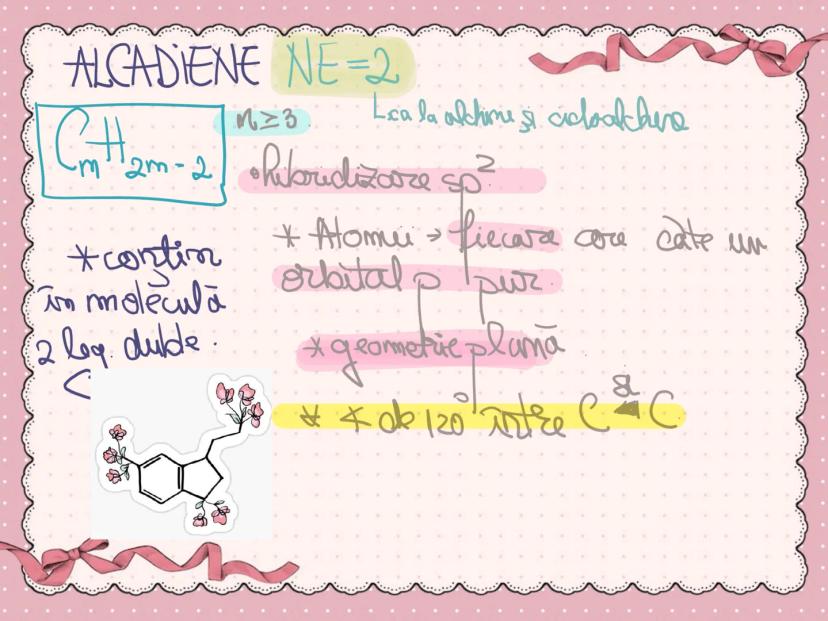 ALCADIENE NE=2
CmH2m-2
n≥3
ca la alchine și cicloalchene
• hibridizare sp²
* Atomii → fiecare are câte un
orbital p pur
* geometrie plană
* ∢ de 120° între C și C
* conțin
în moleculă
2 leg. duble.